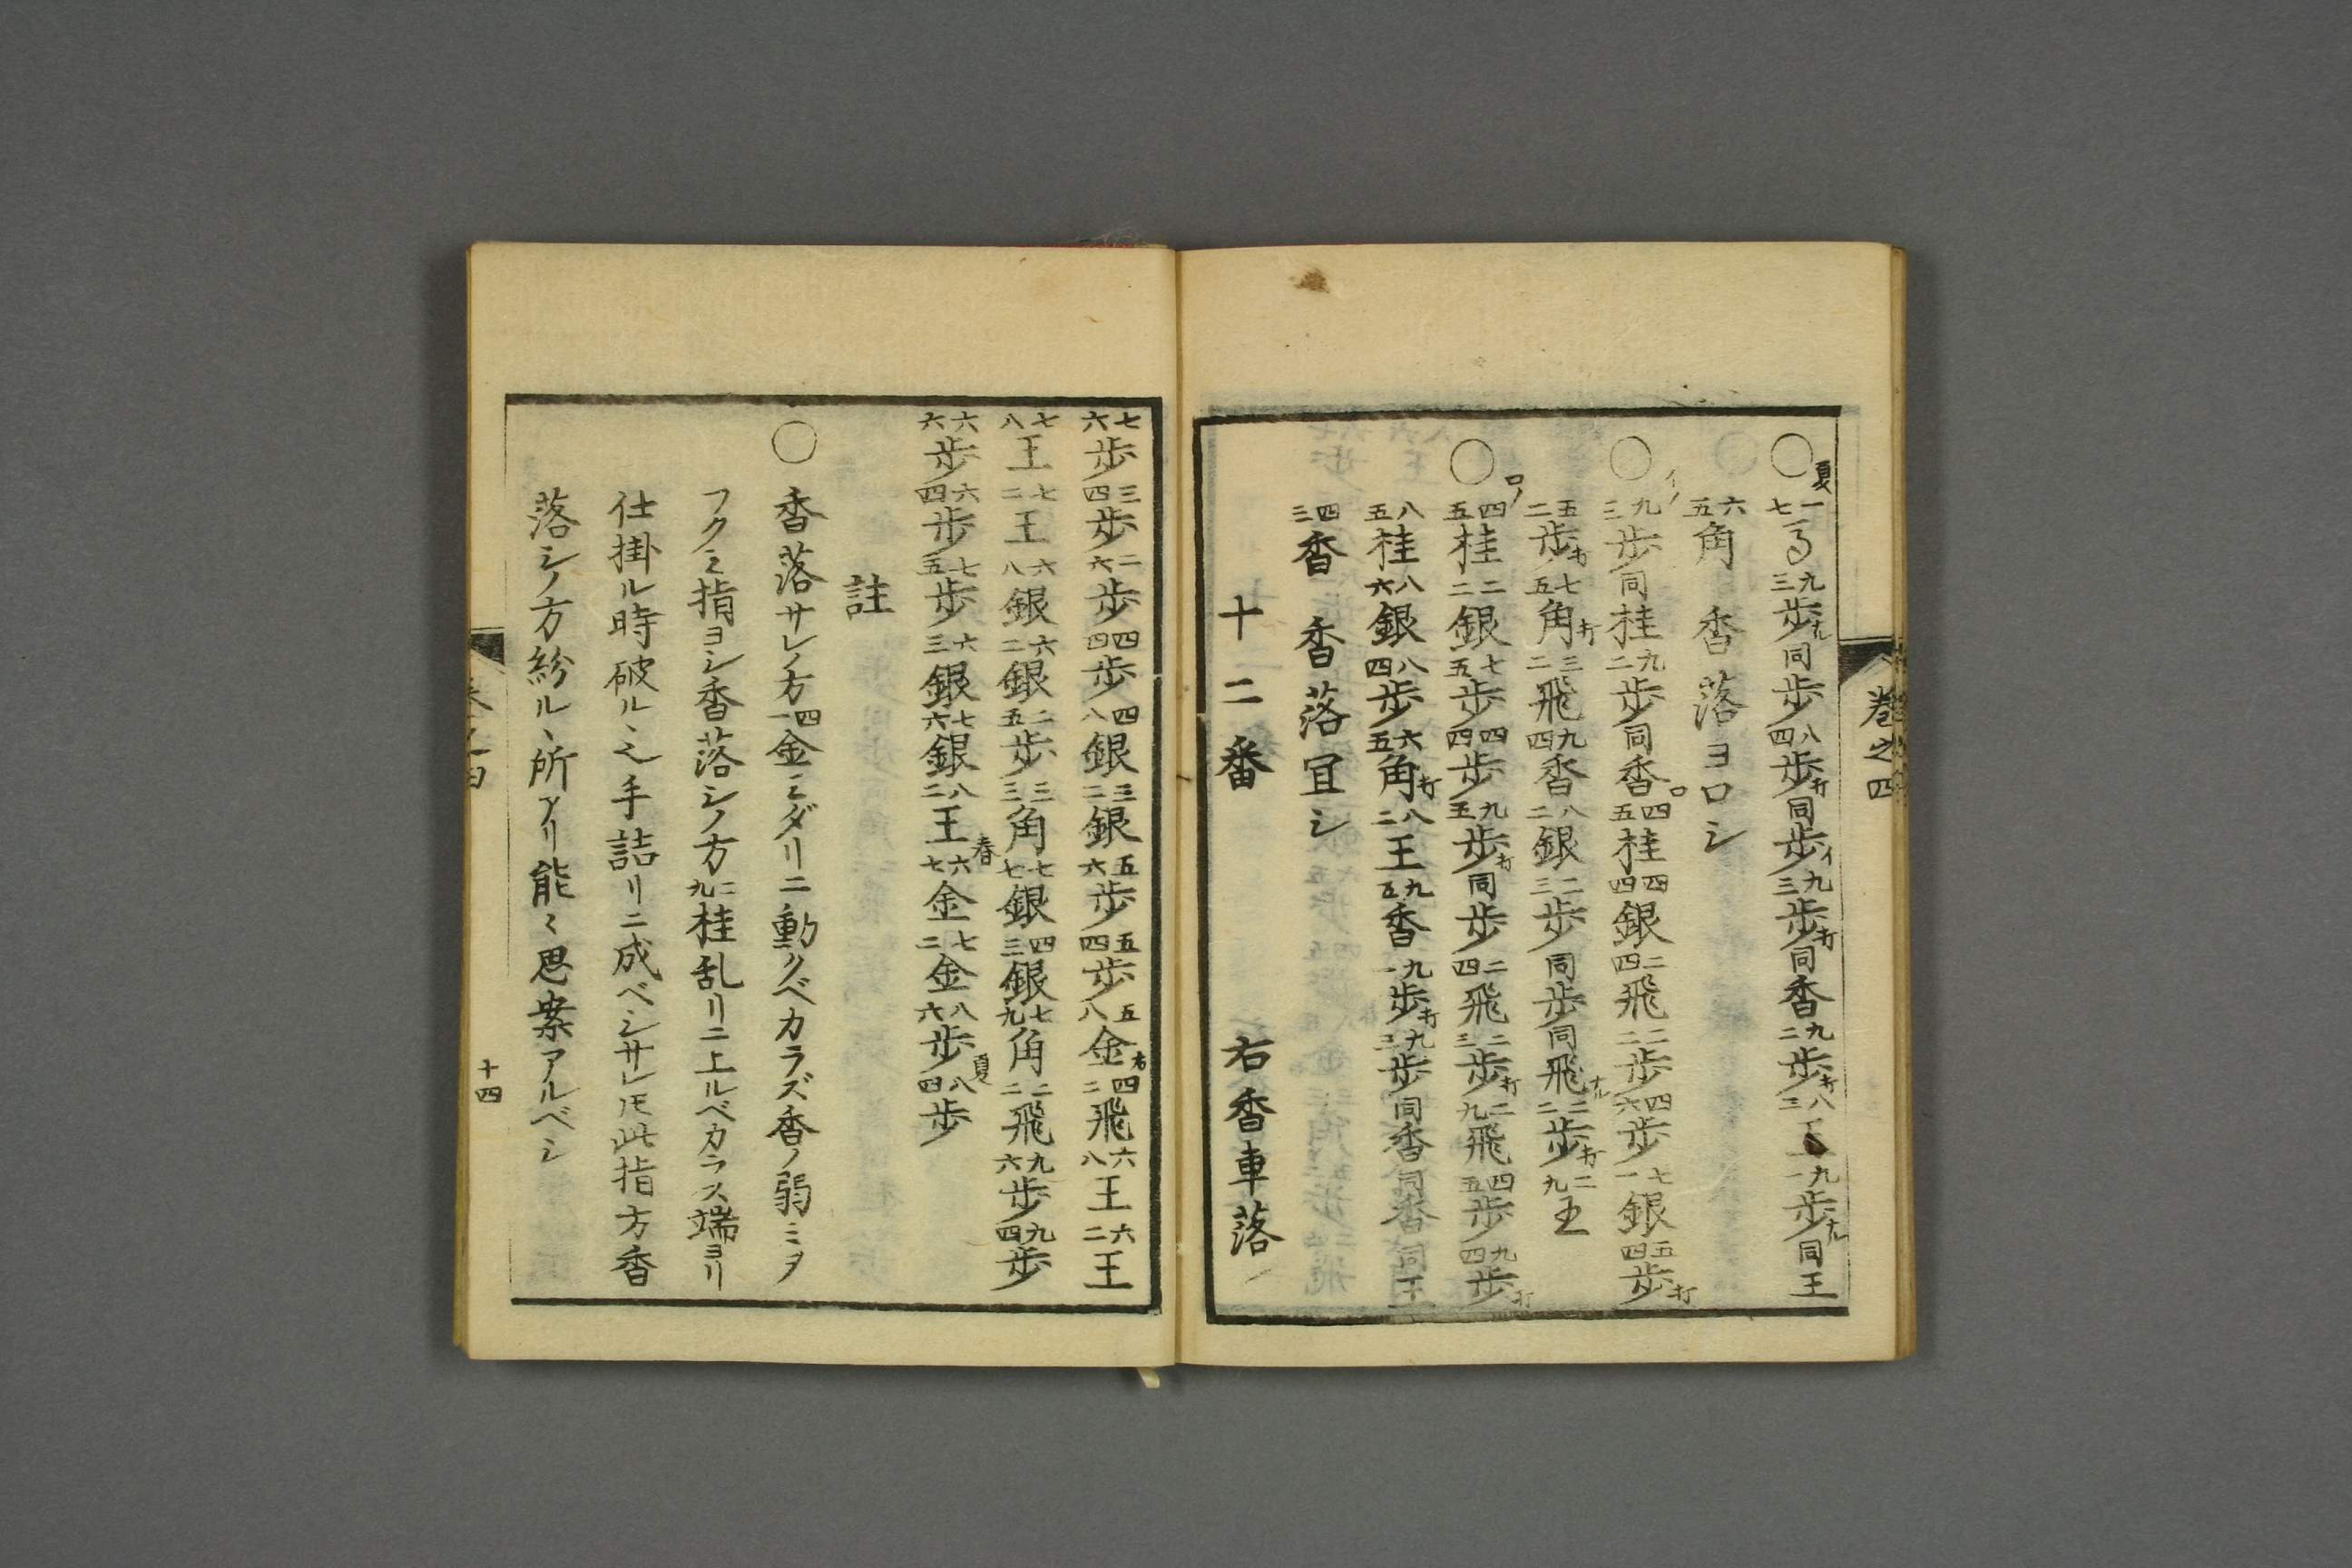 巻之四
○夏一七馬九三歩ナル同歩八四歩打同歩イ九三歩打同香九二歩打八三王九一歩ナル同王
六五角 香落ヨロシ
○イノ九三歩同桂九二歩同香ロ四五桂四四銀二四飛二二歩四六歩七一銀五四歩打
五二歩打七五角打三二飛九四香八二銀二三歩同歩同飛ナル二二歩打二九王
○ロノ四五桂二二銀七五歩四四歩九五歩打同歩二四飛二三歩打二九飛四五歩九四歩打
八五桂八六銀八四歩六五角打八二王九五香九一歩打九三歩同香同香同王
四三香 香落冝シ
十二番 右香車落
七六歩三四歩二六歩四四歩四八銀三二銀五六歩五四歩五八金右四二飛六八王六二王
七八王七二王六八銀六二銀二五歩三三角春七七銀四三銀七九角二二飛九六歩九四歩
六六歩六四歩七五歩六三銀七六銀八二王六七金七二金夏八六歩八四歩
註
○香落サレノ方四一金ミダリニ動クベカラズ香ノ弱ミヲ
フクミ指ヨシ香落シノ方二九桂乱リニ上ルベカラス端ヨリ
仕掛ル時破ルヽ之手詰リニ成ベシサレ𪜈此指方香
落シノ方紛ルヽ所アリ能〻思案アルベシ
十四